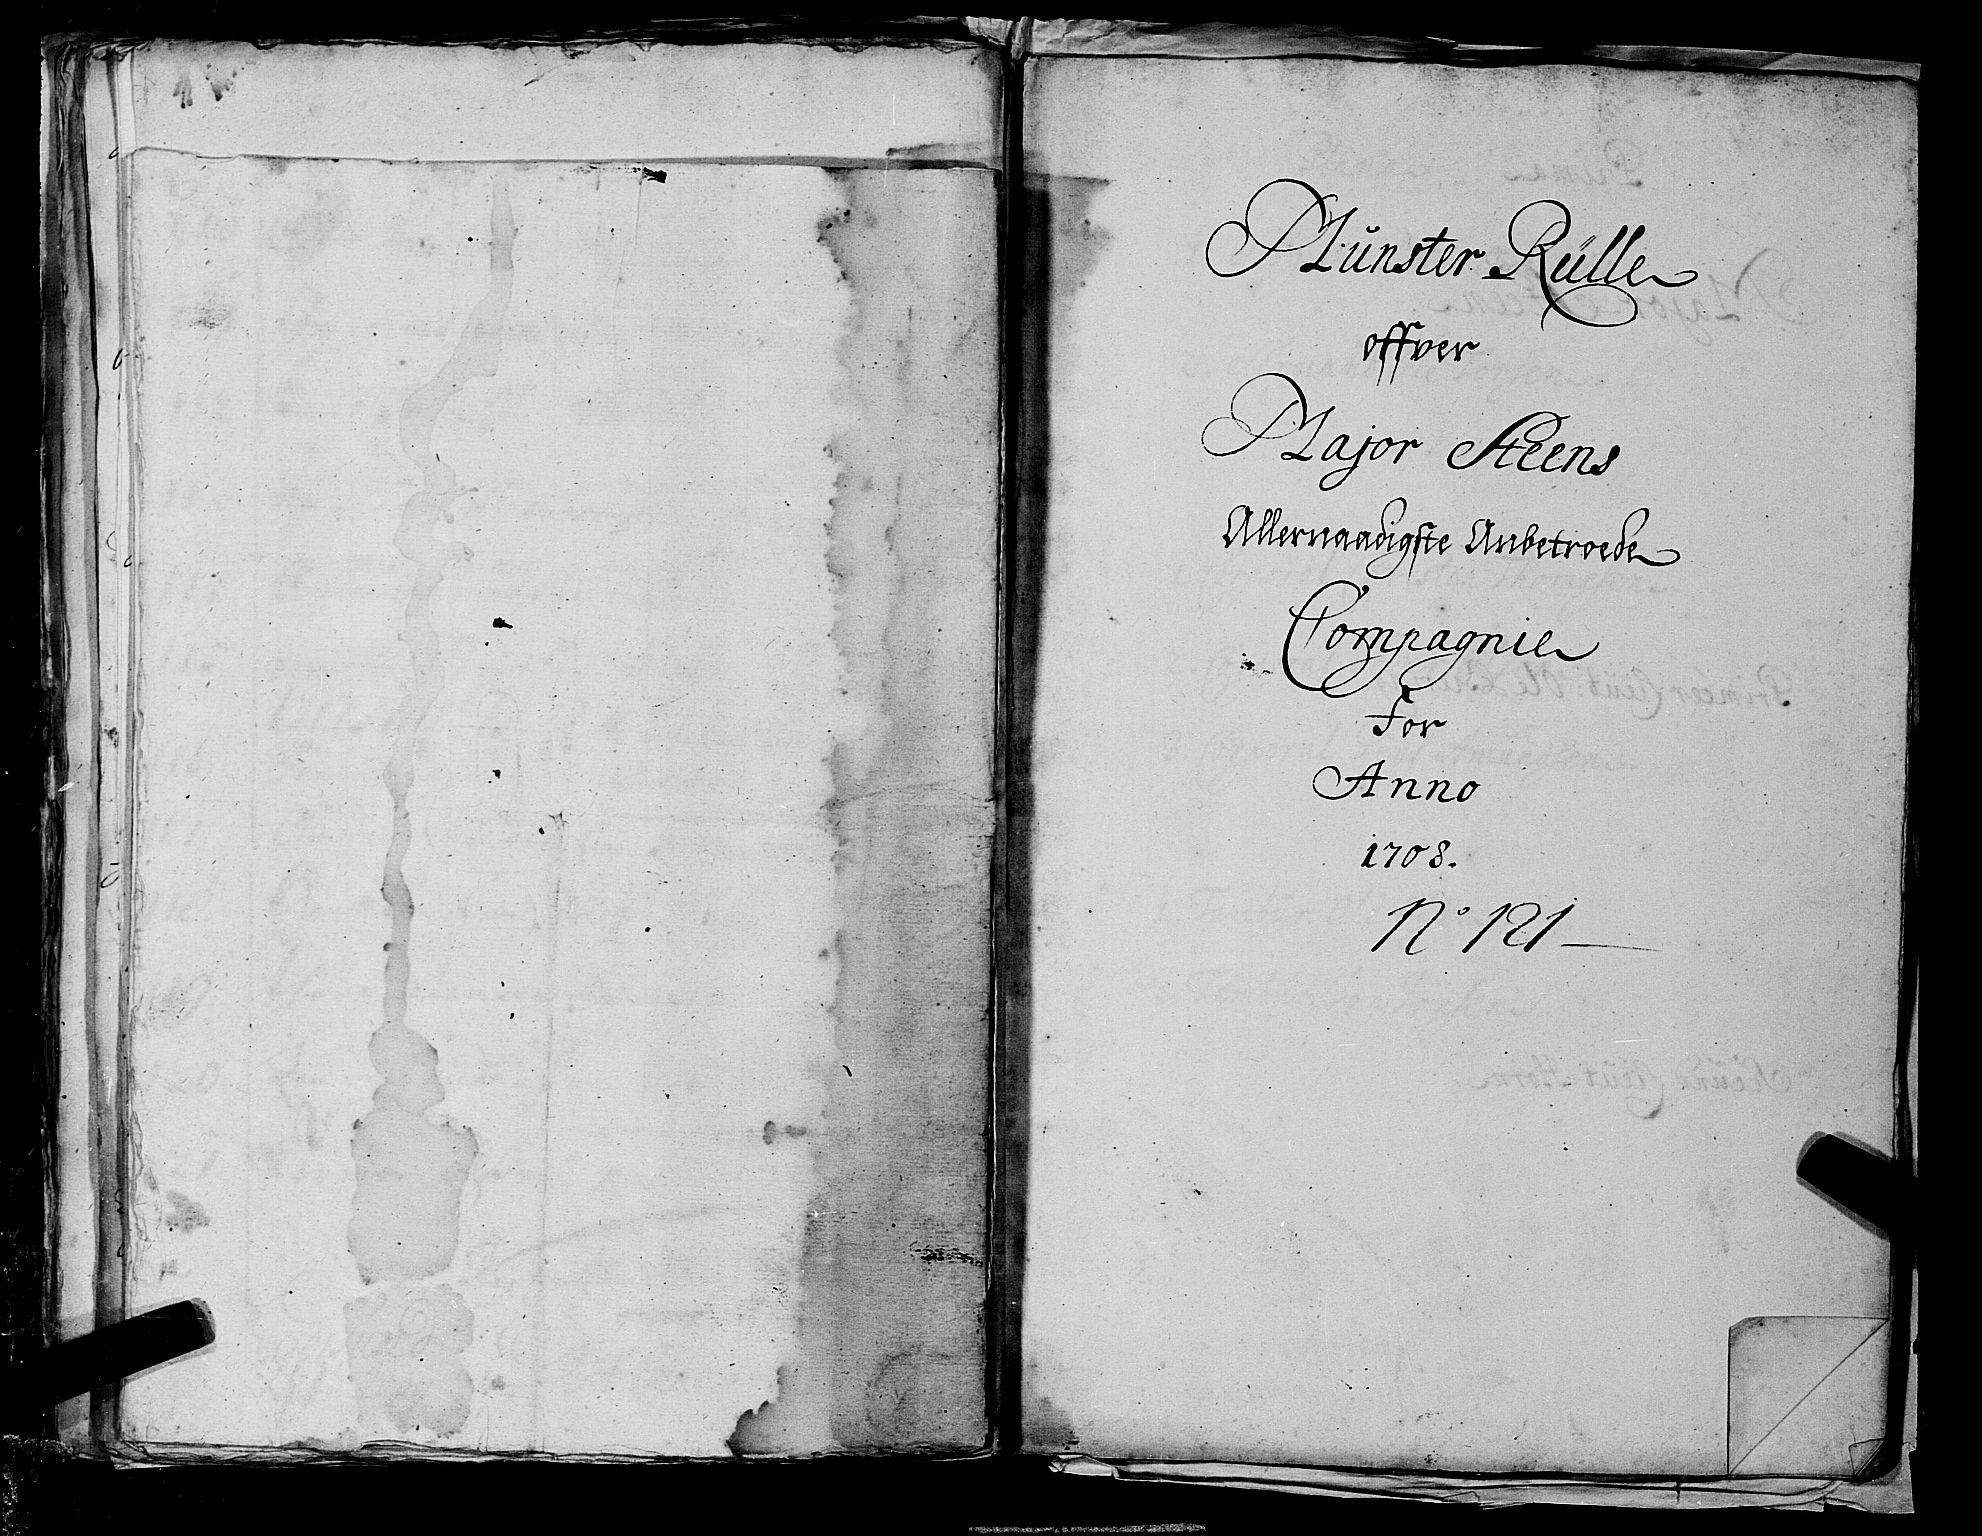 Münster Rülle
offver
Major Steens
Allernaadigste Anbetroede
Compagnie
For
Anno
1708.
N° 121